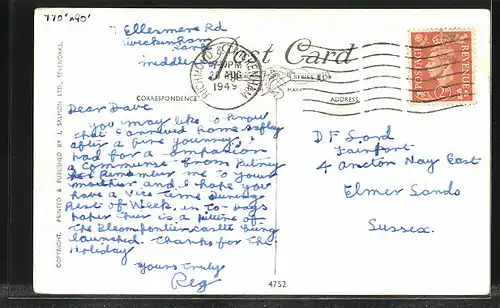 770' x 90'
7 Ellesmere Rd
Twickenham
middle
Post Card
RICHMOND & TWICKENHAM
PM
26 AUG
1949
SERIES
MARK
POSTAGE REVENUE
2D
CORRESPONDENCE
ADDRESS
Dear Dave
you may like to know
that I arrived home safely
after a fine journey. I
had for a companion
a commerse from Putney
Remember me to your
mother and I hope you
have a nice time during
Rest of Week. in to-days
paper their is a picture of
The Bloemfontien castle being
launched. Thanks for the
Holiday
yours truly
Reg
D F Lord
Fairport
4 Ancton Way East
Elmer Sands
Sussex.
COPYRIGHT. PRINTED & PUBLISHED BY J. SALMON LTD., SEVENOAKS.
4752